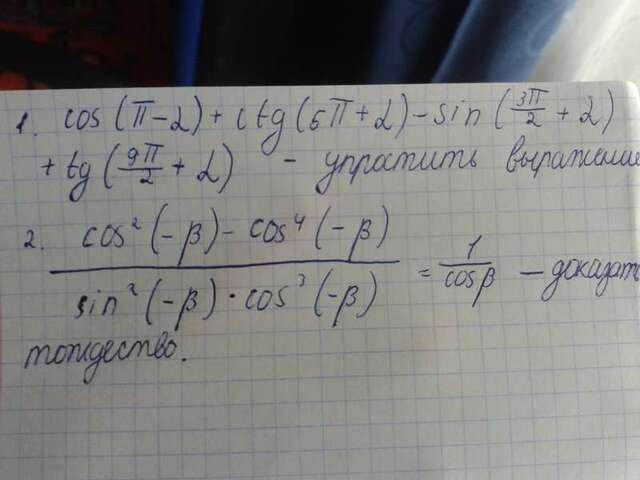 1. cos (π-α) + ctg (6π+α) - sin (3π/2 + α)
+ tg (9π/2 + α) - упростить выражение
2. cos² (-β) - cos⁴ (-β) / sin² (-β) · cos³ (-β) = 1 / cosβ - доказать
тождество.